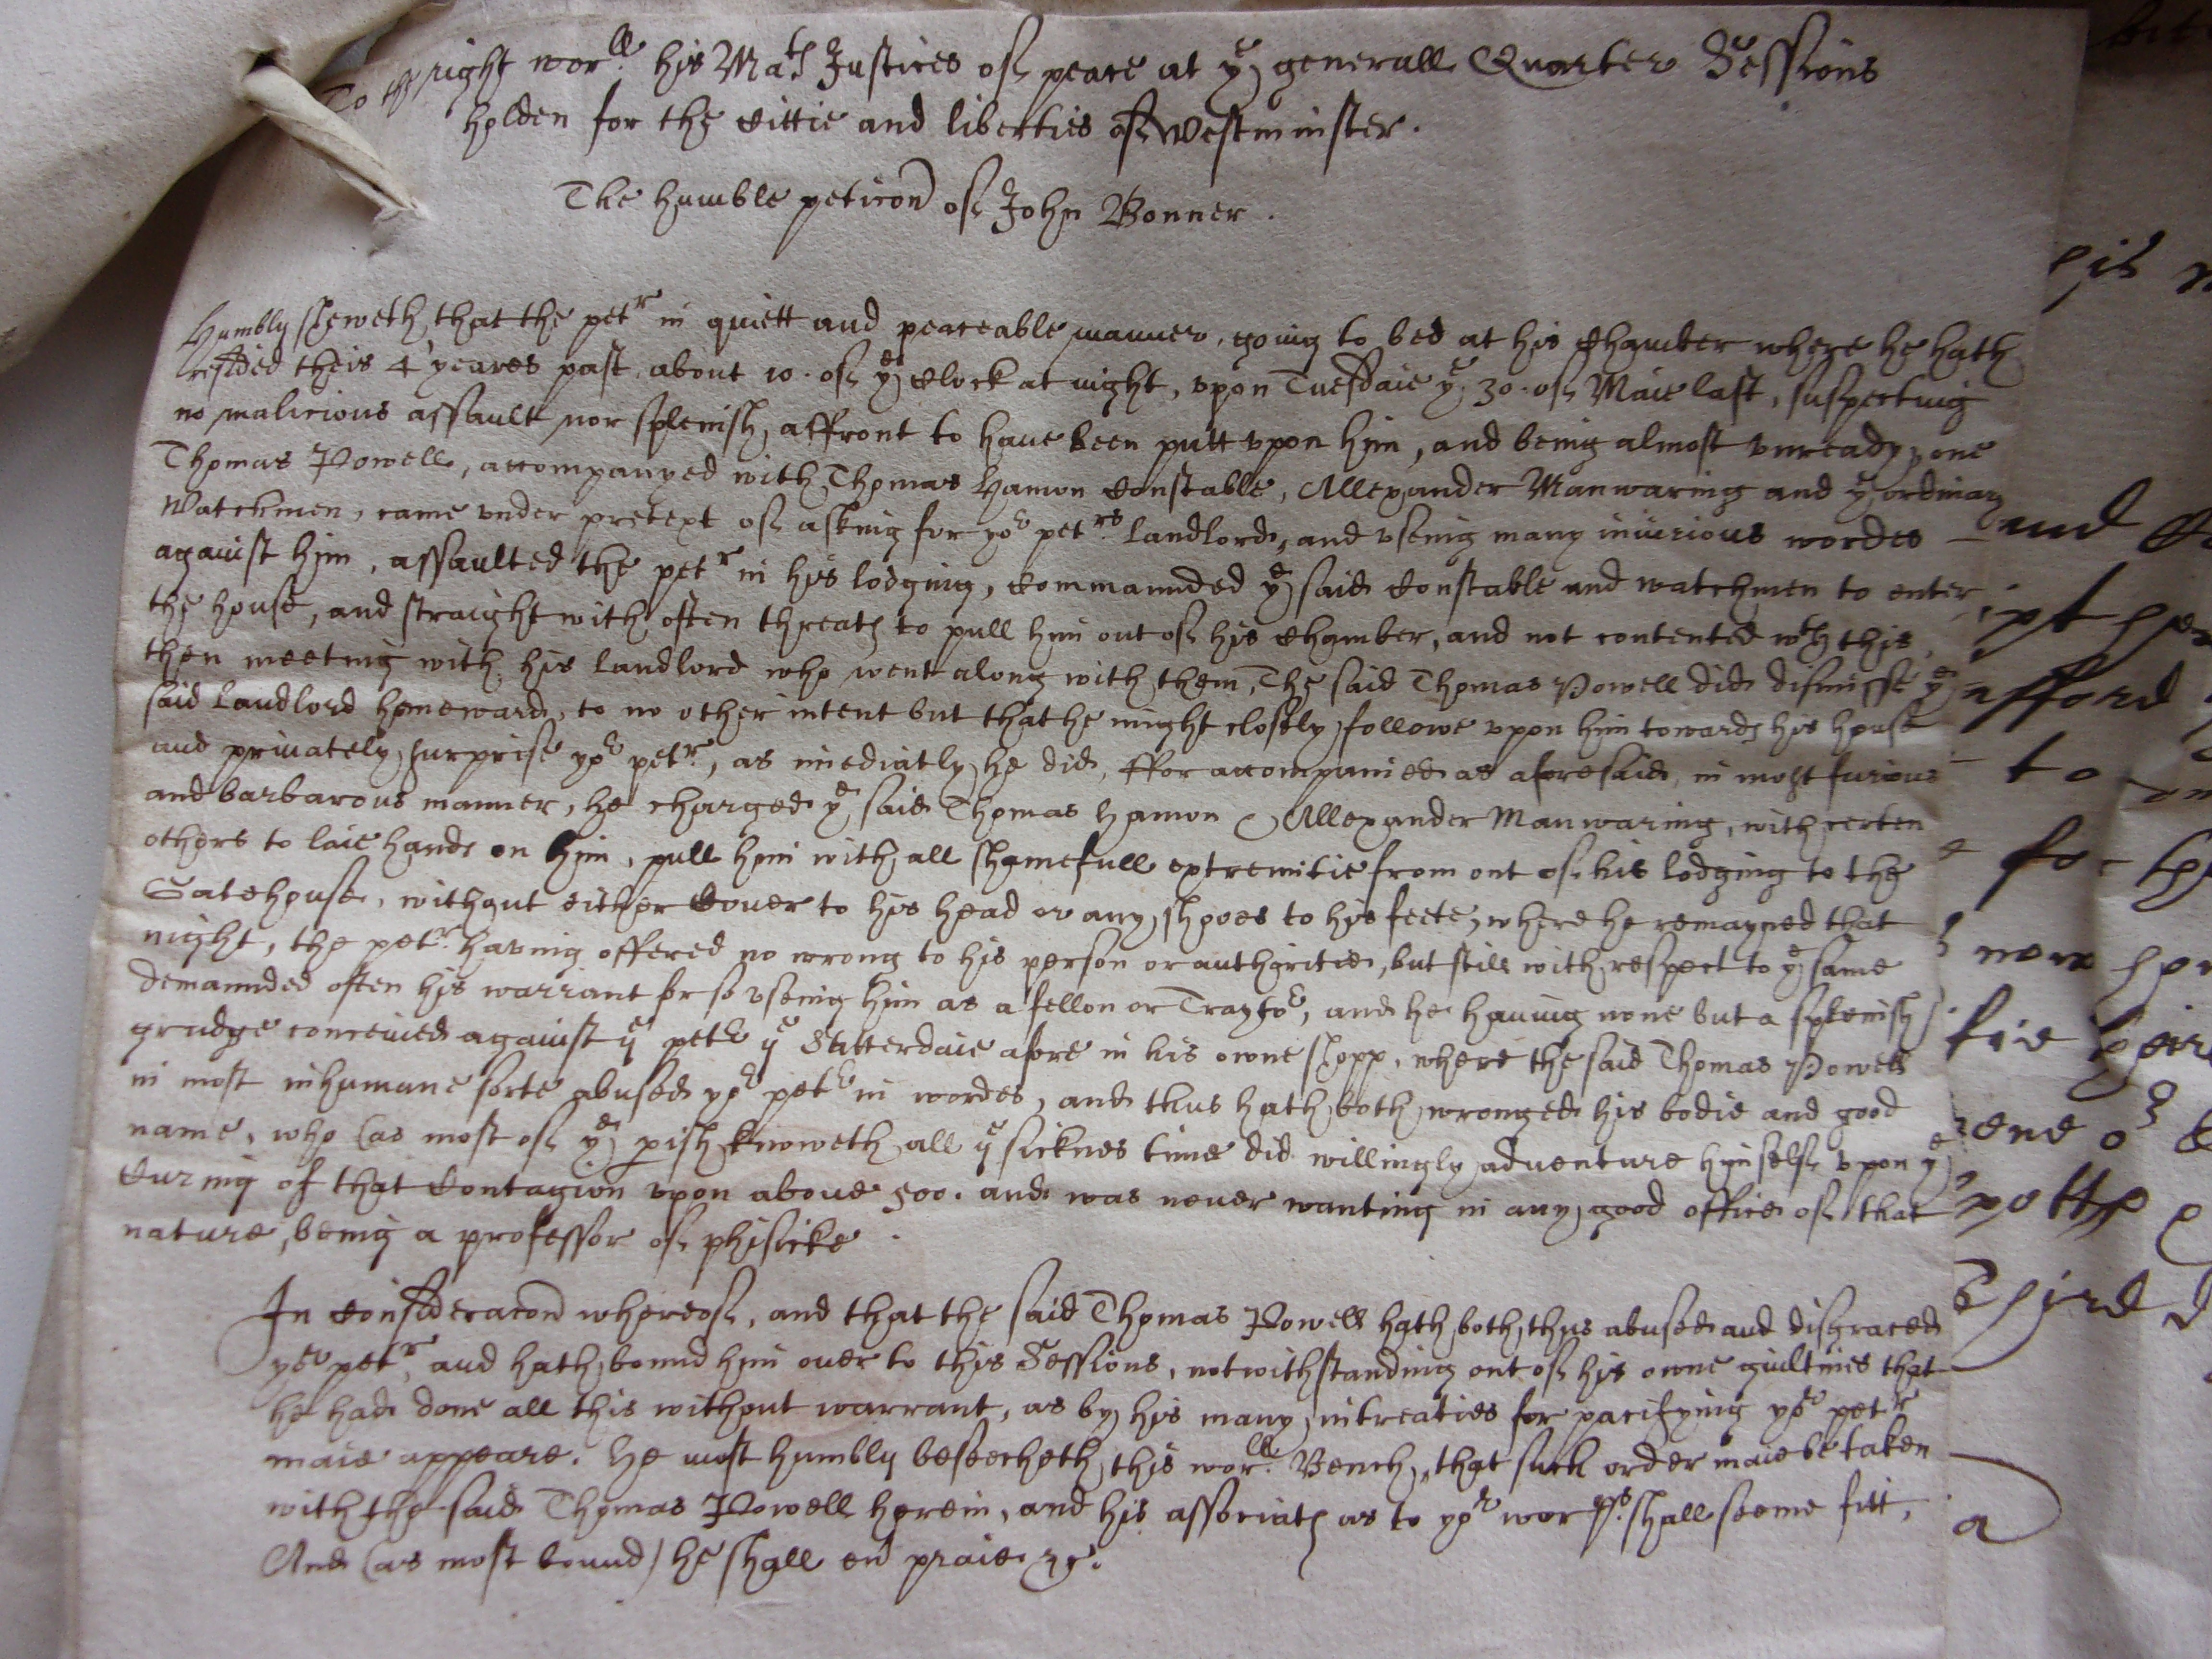 To the right worll. his Mats Justices of peace at ye generall Quarter Sessions
holden for the Cittie and liberties of Westminster.
The humble peticon of John Bonner.
Humbly sheweth, that the petr in quiett and peaceable manner, going to bed at his Chamber where he hath
resided theis 4 yeares past, about 10. of ye Clock at night, vpon Tuesdaie ye 30. of Maie last, suspecting
no malicious assault nor splenish affront to haue been putt vpon him, and being almost vnready, one
Thomas Powell, accompanyed with Thomas Hamon Constable, Allexander Manwaring and ye ordinary
Watchmen, came vnder pretext of asking for yor petrs. landlord, and vseing many iniurious wordes
against him, assaulted the petr in his lodging, Commaunded ye said Constable and watchmen to enter
the house, and straight with often threats to pull him out of his Chamber, and not contented wth this,
then meeting with his landlord who went along with them, The said Thomas Powell did dismisse ye
said Landlord homeward, to no other intent but that he might closely followe vpon him towards his house
and priuately surprise yor petr., as imediatly he did, ffor accompanied as aforesaid, in most furious
and barbarous manner, he charged ye said Thomas Hamon Allexander Manwaring, with certen
others to laie hands on him, pull him with all shamefull extremitie from out of his lodging to the
Gatehouse, without either Couer to his head or any shooes to his feete, where he remayned that
night, the petr. having offered no wrong to his person or authoritie, but still with respect to ye same
demaunded often his warrant for so vseing him as a fellon or Traytor, and he hauing none but a splenish
grudge conceiued against ye petr ye Satterdaie afore in his owne shopp, where the said Thomas Powell
in most inhumane sorte abused yor petr in wordes, and thus hath both wronged his bodie and good
name, who (as most of ye pish knoweth all ye sicknes time did willingly adventure himself vpon ye
Curing of that Contagion vpon aboue 500. and was neuer wanting in any good office of that
nature, being a professor of phisicke.
In Consideracon whereof, and that the said Thomas Powell hath both thus abused and disgraced
yor petr, and hath bound him ouer to this Sessions, notwithstanding out of his owne guiltines that
he had done all this without warrant, as by his many intreaties for pacifying yor petr
maie appeare. He most humbly beseecheth this worll. Bench, that such order maie be taken
with the said Thomas Powell herein, and his associats as to yor worpps. shall seeme fitt,
And (as most bound) he shall eu praie &c.
and
afford
to
for the